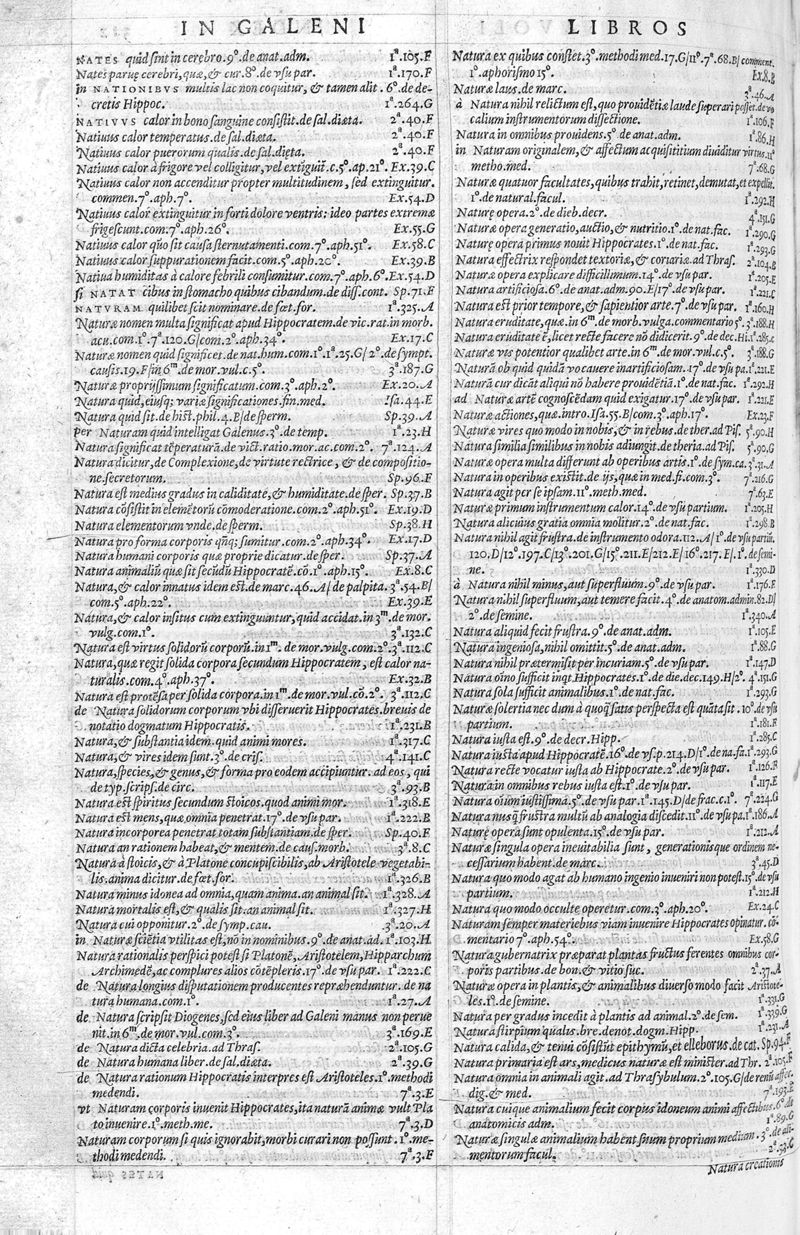 IN GALENI
NATES quid sint in cerebro.9º.de anat.adm. 1ª.105.F
Nates paruę cerebri,quæ,& cur.8º.de vſu par. 1ª.170.F
in NATIONIBVS multis lac non coquitur, & tamen alit. 6º.de de-
cretis Hippoc. 1ª.264.G
NATIVVS calor in bono ſanguine conſiſtit.de ſal.diæta. 2ª.40.F
Natiuus calor temperatus.de ſal.diæta. 2ª.40.F
Natiuus calor puerorum qualis.de ſal.dięta. 2ª.40.F
Natiuus calor à frigore vel colligitur,vel extiguit̃.c.5º.ap.21º. Ex.39.C
Natiuus calor non accenditur propter multitudinem, ſed extinguitur.
commen.7º.aph.7º. Ex.54.D
Natiuus calor extinguitur in forti dolore ventris: ideo partes extremæ
frigeſcunt.com.7º.aph.26º. Ex.55.G
Natiuus calor quo ſit cauſa ſternutamenti.com.7º.aph.51º. Ex.58.C
Natiuus calor ſuppurationem facit.com.5º.aph.20º. Ex.39.B
Natiua humiditas à calore febrili conſumitur.com.7º.aph.6º. Ex.54.D
ſi NATAT cibus in ſtomacho quibus cibandum.de diſſ.cont. Sp.71.F
NATVRAM quilibet ſcit nominare.de fœt.for. 1ª.325.A
Naturæ nomen multa ſignificat apud Hippocratem.de vic.rat.in morb.
acu.com.1º.7ª.120.G/com.2º.aph.34º. Ex.17.C
Naturæ nomen quid ſignificet.de nat.hum.com.1º.1ª.25.G/2º.de ſympt.
cauſis.19.F/in 6ᵐ.de mor.vul.c.5º. 3ª.187.G
Naturæ propriiſſimum ſignificatum.com.3º.aph.2º. Ex.20.A
Natura quid,eiuſq; variæ ſignificationes.fin.med. Iſa.44.E
Natura quid ſit.de hiſt.phil.4.B/de ſperm. Sp.39.A
per Naturam quid intelligat Galenus.3º.de temp. 1ª.23.H
Natura ſignificat tẽperaturã.de vict.ratio.mor.ac.com.2º. 7ª.124.A
Natura dicitur,de Complexione,de virtute rectrice, & de compoſitio-
ne.ſecretorum. Sp.96.F
Natura eſt medius gradus in caliditate,& humiditate.de ſper. Sp.37.B
Natura cõſiſtit in elemẽtorũ cõmoderatione.com.2º.aph.51º. Ex.19.D
Natura elementorum vnde.de ſperm. Sp.38.H
Natura pro forma corporis qñq; ſumitur.com.2º.aph.34º. Ex.17.D
Natura humani corporis quæ proprie dicatur.de ſper. Sp.37.A
Natura animaliũ quæ ſit ſecũdũ Hippocratẽ.cõ.1º.aph.15º. Ex.8.C
Natura,& calor innatus idem eſt.de marc.46.A/de palpita.3ª.54.B/
com.5º.aph.22º. Ex.39.E
Natura,& calor inſitus cum extinguuntur,quid accidat.in 3ᵐ.de mor.
vulg.com.1º. 3ª.132.C
Natura eſt virtus ſolidorũ corporũ.in 1ᵐ. de mor.vulg.com.2º. 3ª.112.C
Natura,quæ regit ſolida corpora ſecundum Hippocratem, eſt calor na-
turalis.com.4º.aph.37º. Ex.32.B
Natura eſt protẽſa per ſolida corpora.in 1ᵐ.de mor.vul.cõ.2º. 3ª.112.C
de Natura ſolidorum corporum vbi differuerit Hippocrates.breuis de
notatio dogmatum Hippocratis. 1ª.231.B
Natura,& ſubſtantia idem.quid animi mores. 1ª.317.C
Natura,& vires idem ſunt.3º.de criſ. 4ª.141.C
Natura,ſpecies,& genus,& forma pro eodem accipiuntur.ad eos, qui
de typ.ſcripſ.de circ. 3ª.93.B
Natura eſt ſpiritus ſecundum ſtoicos.quod animi mor. 1ª.318.E
Natura eſt mens,quæ omnia penetrat.17º.de vſu par. 1ª.222.B
Natura incorporea penetrat totam ſubſtantiam.de ſper. Sp.40.F
Natura an rationem habeat,& mentem.de cauſ.morb. 3ª.8.C
Natura à ſtoicis,& à Platone concupiſcibilis,ab Ariſtotele vegetabi-
lis.anima dicitur.de fœt.for. 1ª.326.B
Natura minus idonea ad omnia,quam anima.an animal ſit. 1ª.328.A
Natura mortalis eſt,& qualis ſit.an animal ſit. 1ª.327.H
Natura cui opponitur.2º.de ſymp.cau. 3ª.20.A
in Naturæ ſciẽtia vtilitas eſt,nõ in nominibus.9º.de anat.ad. 1ª.103.H
Natura rationalis perſpici poteſt ſi Platonẽ,Ariſtotelem,Hipparchum
Archimedẽ,ac complures alios cõtẽpleris.17º.de vſu par. 1ª.222.C
de Natura longius diſputationem producentes repræhenduntur. de na
tura humana.com.1º. 1ª.27.A
de Natura ſcripſit Diogenes,ſed eius liber ad Galeni manus non perue
nit.in 6ᵐ.de mor.vul.com.3º. 3ª.169.E
de Natura dicta celebria.ad Thraſ. 2ª.105.G
de Natura humana liber.de ſal.diæta. 2ª.39.G
de Natura rationum Hippocratis interpres eſt Ariſtoteles.1º.methodi
medendi. 7ª.3.E
vt Naturam corporis inuenit Hippocrates,ita naturã animæ vult Pla
to inuenire.1º.meth.me. 7ª.3.D
Naturam corporum ſi quis ignorabit,morbi curari non poſſunt. 1º.me-
thodi medendi. 7ª.3.F
LIBROS
Natura ex quibus conſtet.3º.methodi med.17.G/11º.7ª.68.B/comment.
1º.aphoriſmo 15º. Ex.8.B
Naturæ laus.de marc. 3ª.46.A
à Natura nihil relictum eſt,quo prouidẽtiæ laude ſuperari poſſet.de vo
calium inſtrumentorum diſſectione. 1ª.106.F
Natura in omnibus prouidens.5º.de anat.adm. 1ª.86.H
in Naturam originalem,& affectum acquiſititium diuiditur virtus.11º
metho.med. 7ª.68.G
Naturæ quatuor facultates,quibus trahit,retinet,demutat,et expellit.
1º.de natural.facul. 1ª.292.H
Naturę opera.2º.de dieb.decr. 4ª.151.G
Naturæ opera generatio,auctio,& nutritio.1º.de nat.fac. 1ª.290.G
Naturę opera primus nouit Hippocrates.1º.de nat.fac. 1ª.293.G
Natura effectrix reſpondet textoriæ,& coriariæ.ad Thraſ. 2ª.104.B
Naturæ opera explicare difficillimum.14º.de vſu par. 1ª.205.E
Natura artificioſa.6º.de anat.adm.90.E/17º.de vſu par. 1ª.221.C
Natura eſt prior tempore,& ſapientior arte.7º.de vſu par. 1ª.160.H
Naturæ eruditate,quæ.in 6ᵐ.de morb.vulga.commentario 5º. 3ª.188.H
Natura eruditate ẽ,licet recte facere nõ didicerit.9º.de dec.Hi.1ª.285.C
Naturæ vis potentior qualibet arte.in 6ᵐ.de mor.vul.c.5º. 3ª.188.G
Naturã ob quid quidã vocauere inartificioſam.17º.de vſu pa.1ª.221.E
Naturã cur dicãt aliqui nõ habere prouidẽtiã.1º.de nat.fac. 1ª.292.H
ad Naturæ artẽ cognoſcẽdam quid exigatur.17º.de vſu par. 1ª.221.E
Naturæ actiones,quæ.intro.Iſa.55.B/com.3º.aph.17º. Ex.23.F
Naturæ vires quo modo in nobis,& in rebus.de ther.ad Piſ. 5ª.90.H
Natura ſimilia ſimilibus in nobis adiungit.de theria.ad Piſ. 5ª.90.G
Naturæ opera multa differunt ab operibus artis.1º.de ſym.ca. 3ª.31.A
Natura in operibus exiſtit.de ijs,quæ in med.fi.com.3º. 7ª.216.G
Natura agit per ſe ipſam.11º.meth.med. 7ª.63.E
Naturæ primum inſtrumentum calor.14º.de vſu partium. 1ª.205.H
Natura alicuius gratia omnia molitur.2º.de nat.fac. 1ª.298.B
Natura nihil agit fruſtra.de inſtrumento odora.112.A/1º.de vſu partiũ.
120.D/12º.197.C/13º.201.G/15º.211.E/212.E/16º.217.F/.1º.de ſemi-
ne. 1ª.330.D
à Natura nihil minus,aut ſuperfluum.9º.de vſu par. 1ª.176.E
Natura nihil ſuperfluum,aut temere facit.4º.de anatom.admin.82.D/
2º.de ſemine. 1ª.340.A
Natura aliquid fecit fruſtra.9º.de anat.adm. 1ª.105.E
Natura ingenioſa,nihil omittit.5º.de anat.adm. 1ª.88.G
Natura nihil prætermiſit per incuriam.5º.de vſu par. 1ª.147.D
Natura oĩno ſufficit inqt.Hippocrates.1º.de die.dec.149.H/2º. 4ª.151.G
Natura ſola ſufficit animalibus.1º.de nat.fac. 1ª.293.G
Naturæ ſolertia nec dum à quoq̃ ſatis perſpecta eſt quãta ſit.10º.de vſu
partium. 1ª.181.F
Natura iuſta eſt.9º.de decr.Hipp. 1ª.285.C
Natura iuſta apud Hippocratẽ.16º.de vſ.p.214.D/1º.de na.fa.1ª.293.G
Natura recte vocatur iuſta ab Hippocrate.2º.de vſu par. 1ª.126.F
Natura in omnibus rebus iuſta eſt.1º.de vſu par. 1ª.117.E
Natura oĩum iuſtiſſima.5º.de vſu par.1ª.145.D/de frac.c.1º. 7ª.224.G
Natura nuſq̃ fruſtra multũ ab analogia diſcedit.11º.de vſu pa.1ª.186.A
Naturę opera ſunt opulenta.15º.de vſu par. 1ª.212.A
Naturæ ſingula opera ineuitabilia ſunt, generationiſque ordinem ne-
ceſſarium habent.de marc. 3ª.45.D
Natura quo modo agat ab humano ingenio inueniri non poteſt.15º.de vſu
partium. 1ª.212.H
Natura quo modo occulte operetur.com.3º.aph.20º. Ex.24.C
Naturam ſemper materiebus viam inuenire Hippocrates opinatur.cõ-
mentario 7º.aph.54º. Ex.58.G
Natura gubernatrix præparat plantas fructus ferentes omnibus cor-
poris partibus.de bon.& vitio ſuc. 2ª.37.A
Naturæ opera in plantis,& animalibus diuerſo modo facit Ariſtote-
les.1º.de ſemine. 1ª.331.G
Natura per gradus incedit à plantis ad animal.2º.de ſem. 1ª.339.G
Natura ſtirpium qualis.bre.denot.dogm.Hipp. 1ª.231.A
Natura calida,& tenui cõſiſtũt epithymũ,et elleborus.de cat. Sp.94.F
Natura primaria eſt ars,medicus naturæ eſt miniſter.ad Thr. 2ª.105.F
Natura omnia in animali agit.ad Thraſybulum.2º.105.G/de renũ affec.
dig.& med. 7ª.193.E
Natura cuique animalium fecit corpus idoneum animi affectibus.6º.de
anatomicis adm. 1ª.89.G
Naturæ ſingulæ animalium habent ſuum proprium medium.3º.de ali-
mentorum facul. 2ª.33.C
Natura creationis